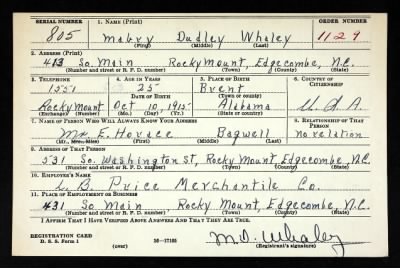 SERIAL NUMBER 1. NAME (Print) ORDER NUMBER
805 Mabry Dudley Whaley 1129
(First) (Middle) (Last)
2. ADDRESS (Print)
413 So. Main Rocky Mount, Edgecombe, N.C.
(Number and street or R. F. D. number) (Town) (County) (State)
3. TELEPHONE 4. AGE IN YEARS 5. PLACE OF BIRTH 6. COUNTRY OF CITIZENSHIP
1551 25 Brent
DATE OF BIRTH (Town or county)
Rocky Mount Oct 10, 1915 Alabama U.S.A.
(Exchange) (Number) (Mo.) (Day) (Yr.) (State or country)
7. NAME OF PERSON WHO WILL ALWAYS KNOW YOUR ADDRESS 8. RELATIONSHIP OF THAT PERSON
Mr. E. Horace Bagwell no relation
(Mr., Mrs., Miss) (First) (Middle) (Last)
9. ADDRESS OF THAT PERSON
531 So. Washington St, Rocky Mount, Edgecombe, N.C.
(Number and street or R. F. D. number) (Town) (County) (State)
10. EMPLOYER'S NAME
L. B. Price Merchantile Co.
11. PLACE OF EMPLOYMENT OR BUSINESS
431 So Main Rocky Mount, Edgecombe, N.C.
(Number and street or R. F. D. number) (Town) (County) (State)
I AFFIRM THAT I HAVE VERIFIED ABOVE ANSWERS AND THAT THEY ARE TRUE.
REGISTRATION CARD
D. S. S. Form 1 (over) 16-17105 M.D. Whaley
(Registrant's signature)